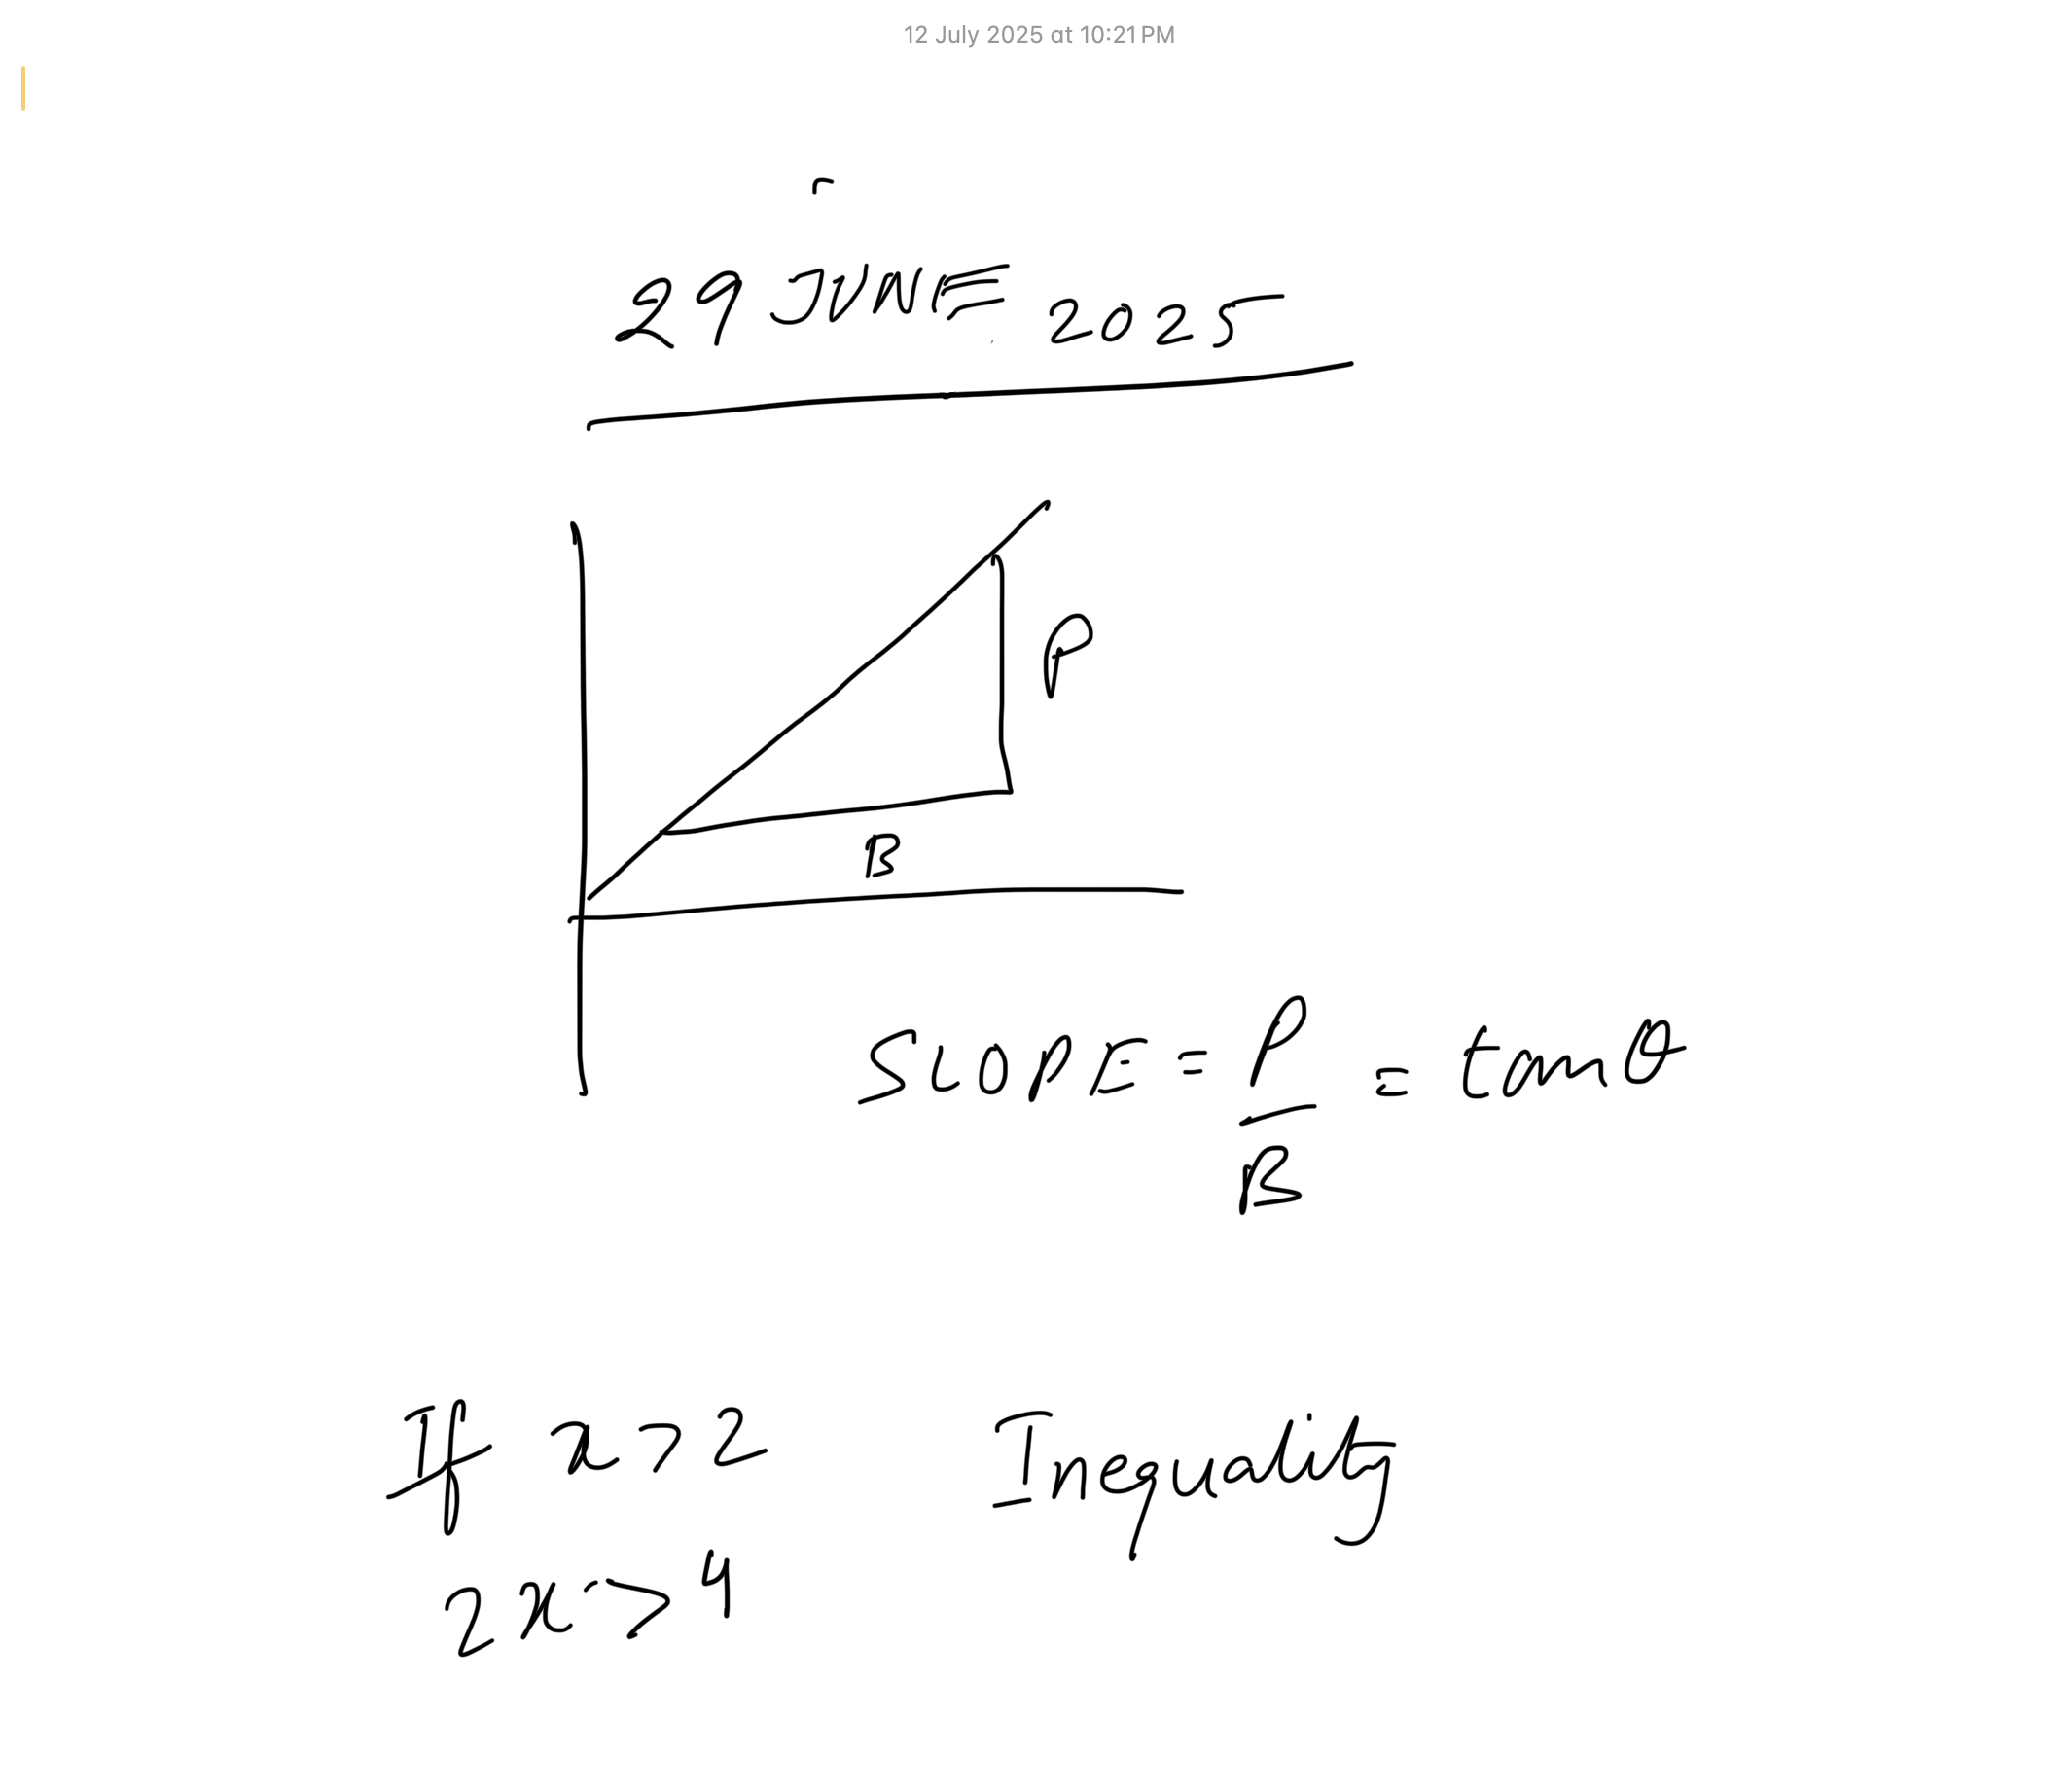 12 July 2025 at 10:21 PM
29 JUNE 2025
P
B
SLOPE = P/B = tanθ
If x>2 Inequality
2x>4